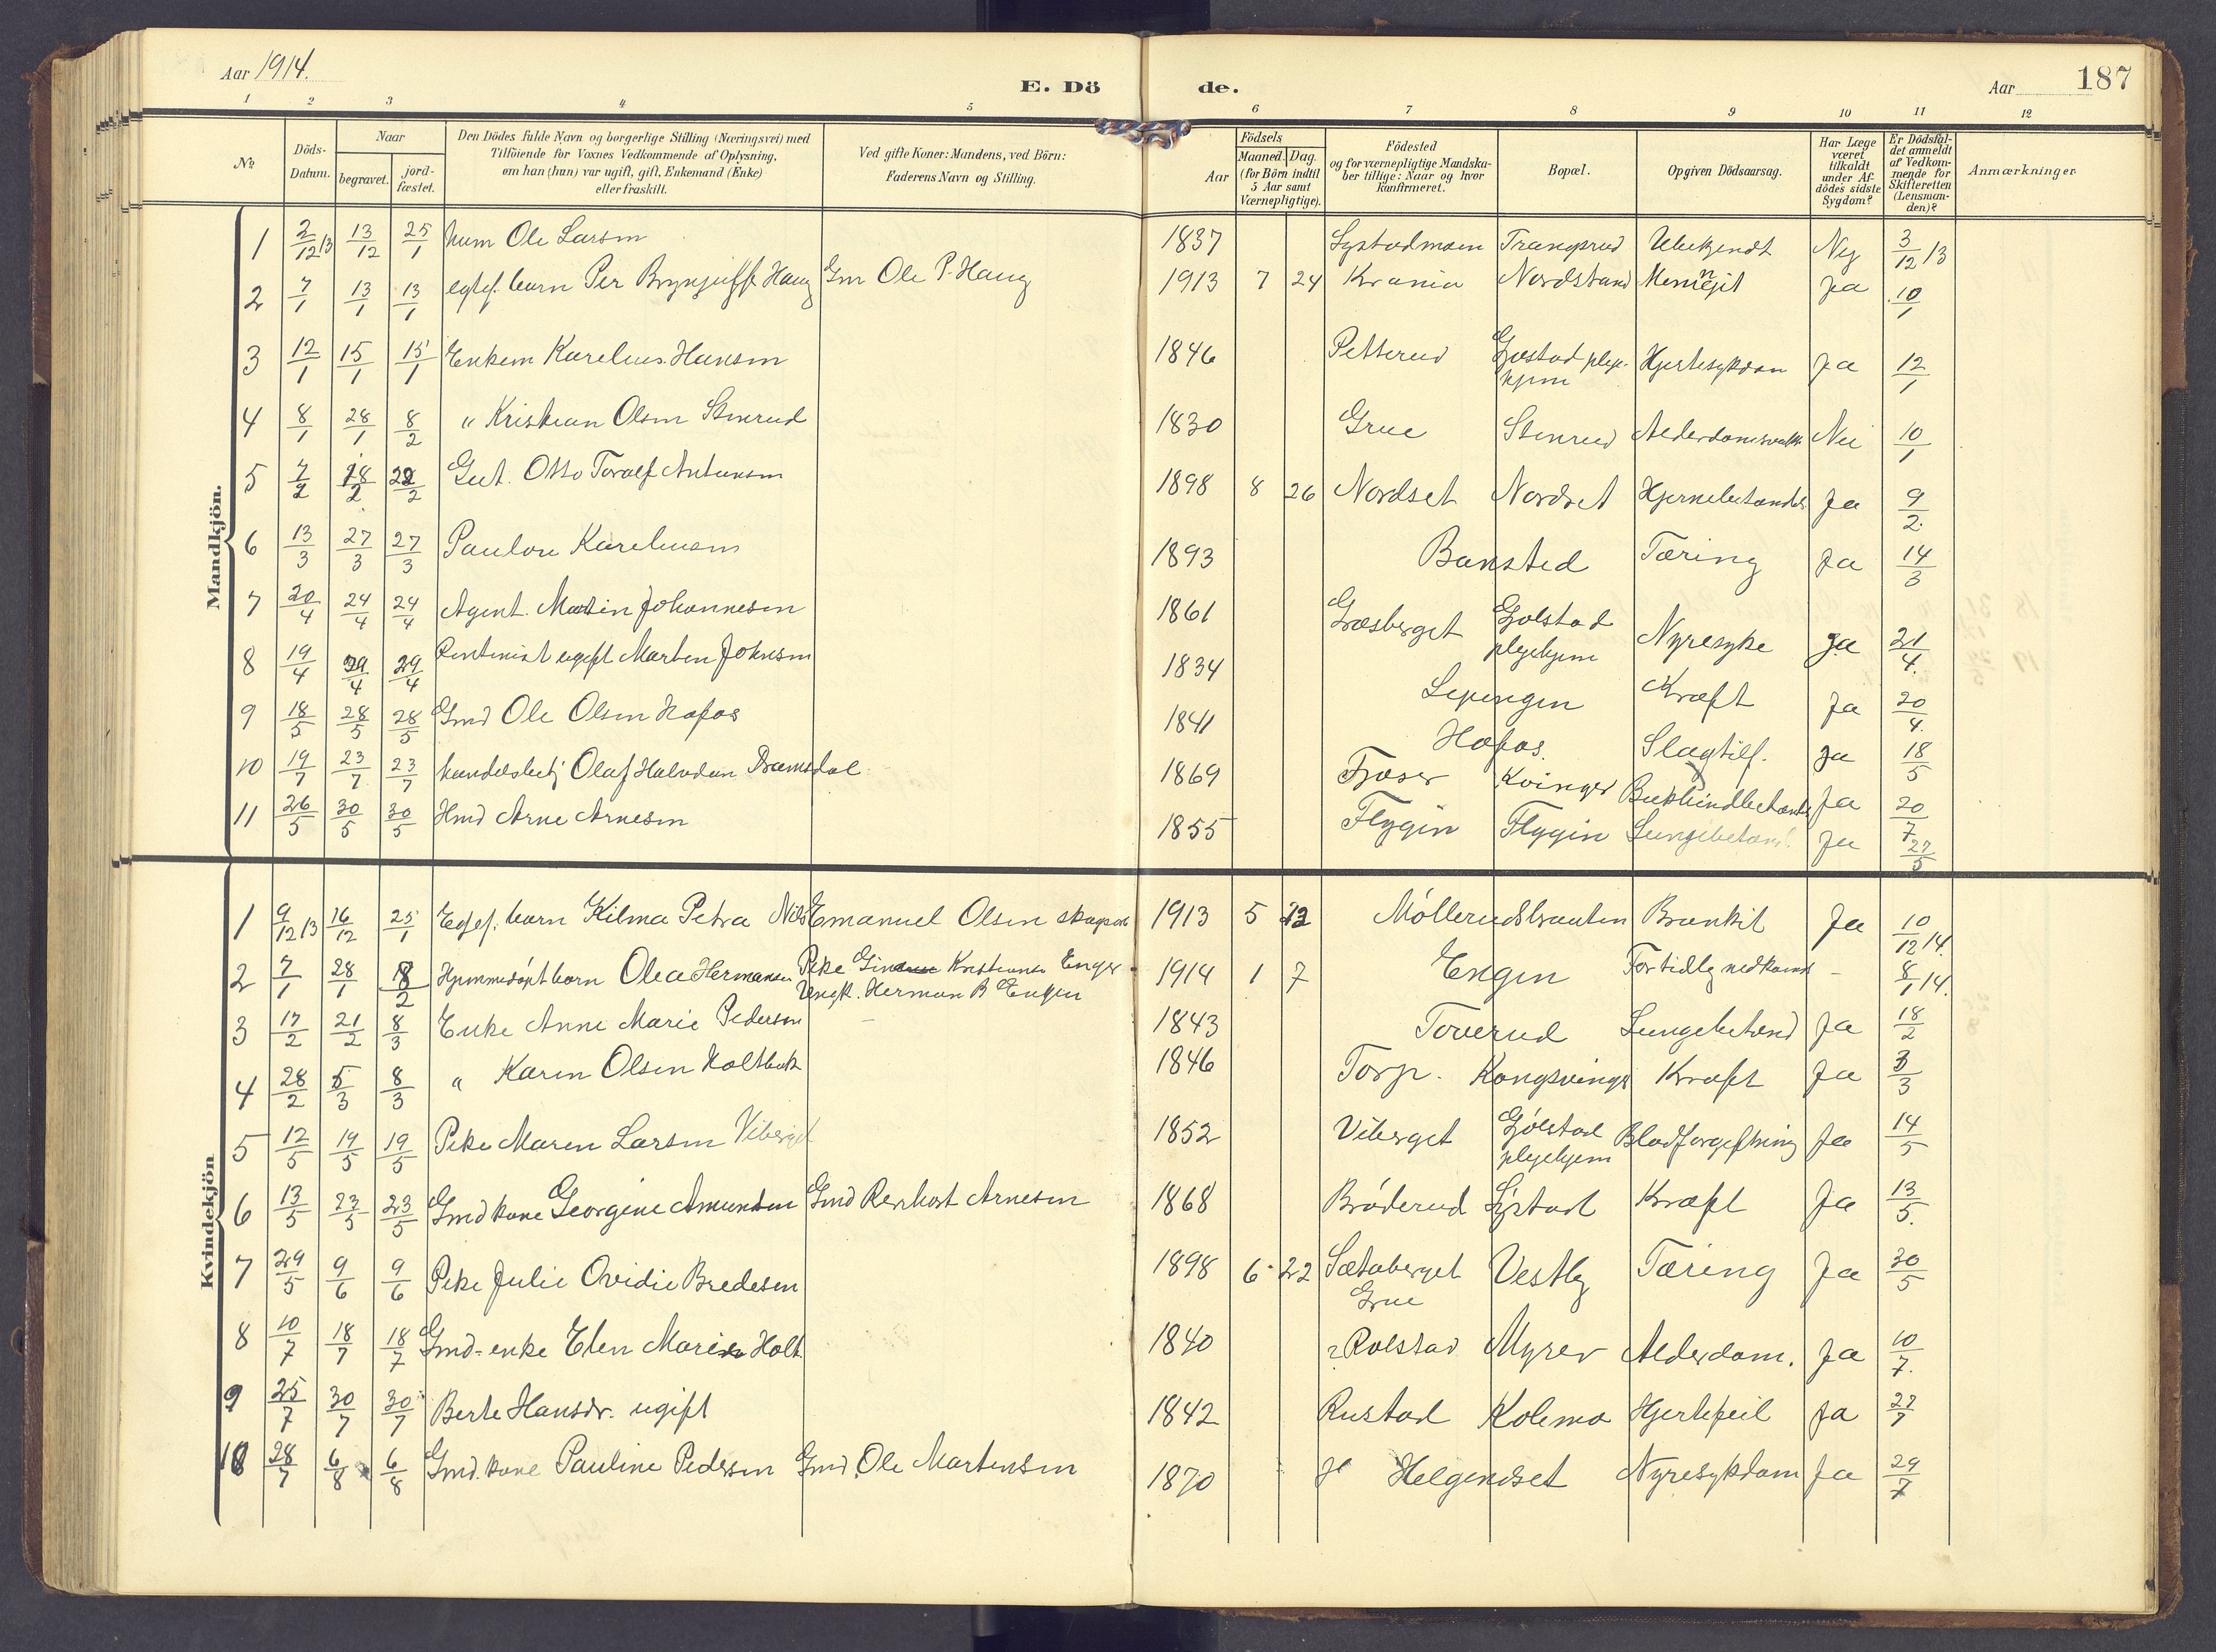 Aar 1914.
E. Dö
de.
Aar
187
1 2 3 4 5 6 7 8 9 10 11 12
№
Döds-
Datum.
Naar
begravet.
jord-
fæstet.
Den Dödes fulde Navn og borgerlige Stilling (Næringsvei) med
Tilföiende for Voxnes Vedkommende af Oplysning,
om han (hun) var ugift, gift, Enkemand (Enke)
eller fraskilt.
Ved gifte Koner: Mandens, ved Börn:
Faderens Navn og Stilling.
Födsels
Aar
Maaned. Dag.
(for Börn indtil
5 Aar samt
Værnepligtige).
Födested
og for værnepligtige Mandska-
ber tillige: Naar og hvor
Konfirmeret.
Bopæl.
Opgiven Dödsaarsag.
Har Læge
været
tilkaldt
under Af-
dödes sidste
Sygdom?
Er Dödsfal-
det anmeldt
af Vedkom-
mende for
Skifteretten
(Lensman-
den)?
Anmærkninger
Mandkjön.
1 2/12 13 13/12 25/1 Ole Larsen 1837 Trangsrud Ubekjendt Nej 3/12 13
2 7/1 13/1 13/1 egtef. barn Per Brynjulff Haug Gm Ole P. Haug 1913 7 24 Krania Nordstrand Ja 10/1
3 12/1 15/1 15/1 Enkem Karelius Hansen 1846 Petterud Gjølstad pleje-
hjem Hjertesykdom Ja 12/1
4 8/1 28/1 8/2 " Kristian Olsen Stenrud 1830 Grue Stenrud Nei 10/1
5 18/2 22/2 Gut. Otto Toralf Antonsen 1898 8 26 Nordset Nordset Hjernebetændels Ja 9/2
6 13/3 27/3 27/3 Kareliusen 1893 Bansted Tæring Ja 14/3
7 20/4 24/4 24/4 Agent. Martin Johannesen 1861 Græsberget Gjølstad
plejehjem Nyresyke Ja 21/4
8 19/4 29/4 29/4 ugift Marten Johnsen 1834 Kræft Ja 20/4
9 18/5 28/5 28/5 Gmd Ole Olsen Hofos 1841 Hofos. Slagtilf. Ja 18/5
10 19/7 23/7 23/7 handelsbetj Olaf Halvdan 1869 Kvinger Ja 20/7
11 26/5 30/5 30/5 Hmd Arne Arnesen 1855 Flygin Flygin Lungebetænd. Ja 27/5
Kvindekjön
1 9/12 13 16/12 25/1 Egtef. barn Kilma Petra Emanuel Olsen 1913 5 Møllerudsbraaten Bronkit Ja 10/12 14.
2 7/1 28/1 8/2 Hjemmedøpt barn Olea Hermansen Pike Kristiansen Enger
Ungk. Herman B Engen 1914 1 7 Engen For tidlig nedkomst - 8/1 14.
3 17/2 21/2 8/3 Enke Anne Marie Pedersen 1843 Toverud Lungebetænd Ja 18/2
4 28/2 5/3 8/3 " Karen Olsen 1846 Torp. Kongsvinger Kræft Ja 3/3
5 12/5 19/5 19/5 Pike Maren Larsen Viberget 1852 Viberget Gjølstad
plejehjem Blodforgiftning Ja 14/5
6 13/5 23/5 23/5 Gmd kone Georgine Amundsen Gmd Reinhart Arnesen 1868 Brøderud Kræft Ja 13/5
7 29/5 9/6 9/6 Pike Julie Ovidie Bredesen 1898 6 22 Sætaberget
Grue Vestby Tæring Ja 30/5
8 10/7 18/7 18/7 Gmd-enke Elen Marie Holt 1840 Rolstad Myrer Alderdom. Ja 10/7
9 25/7 30/7 30/7 Berte Hansdr. ugift 1842 Rustad Kolema Hjertefeil Ja 27/7
10 28/7 6/8 6/8 Gmd. kone Pauline Pedersen Gmd. Ole Martinsen 1870 Helgeneset Nyresykdom Ja 29/7